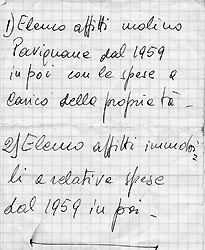 1) Elenco affitti molino
Pavignane dal 1959
in poi con le spese a
carico della proprietà -
2) Elenco affitti immobi
li a relative spese
dal 1959 in poi -